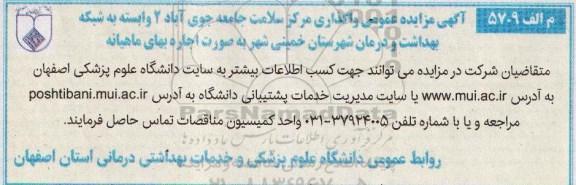 م الف ۵۷۰۹
آگهی مزایده عمومی واگذاری مرکز سلامت جامعه جوی آباد ۲ وابسته به شبکه
بهداشت و درمان شهرستان خمینی شهر به صورت اجاره بهای ماهیانه
متقاضیان شرکت در مزایده می توانند جهت کسب اطلاعات بیشتر به سایت دانشگاه علوم پزشکی اصفهان
به آدرس www.mui.ac.ir یا سایت مدیریت خدمات پشتیبانی دانشگاه به آدرس poshtibani.mui.ac.ir
مراجعه و یا با شماره تلفن ۳۷۹۲۴۰۰۵-۰۳۱ واحد کمیسیون مناقصات تماس حاصل فرمایند.
روابط عمومی دانشگاه علوم پزشکی و خدمات بهداشتی درمانی استان اصفهان